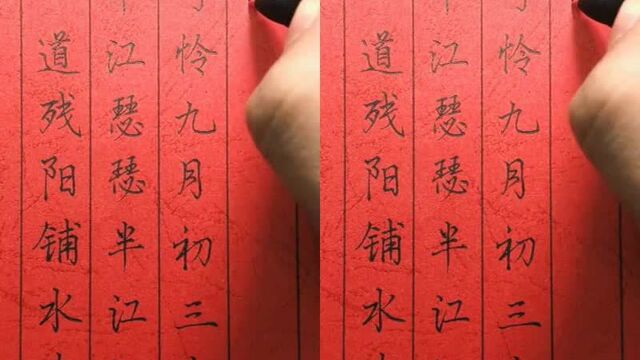 道残阳铺水
江瑟瑟半江
怜九月初三
道残阳铺水
江瑟瑟半江
怜九月初三